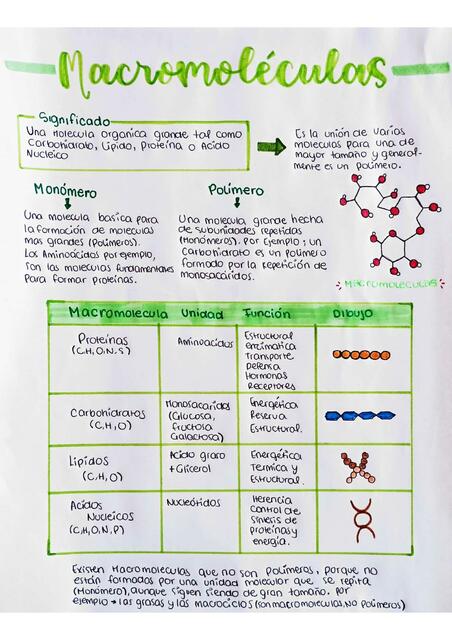 Macromoléculas
Significado
Una molecula organica grande tal como
Carbohidrato, Lípido, Proteína o Acido
Nucleico
Es la unión de varias
moleculas para una de
mayor tamaño y general-
mente es un polímero.
Monómero
Una molecula basica para
la formación de moleculas
mas grandes (Polímeros).
Los Aminoácidos por ejemplo,
son las moleculas fundamentales
Para formar proteínas.
Polímero
Una molecula grande hecha
de subunidades repetidas
(Monómeros). Por Ejemplo; un
Carbohidrato es un polímero
formado por la repetición de
Monosacaridos.
Macromoleculas
Macromolecula Unidad Función Dibujo
Proteínas
(C,H,O,N,S)
Aminoacidos
Estructural
enzimatica
Transporte
Defensa
Hormonas
Receptores
Carbohidratos
(C,H,O)
Monosacaridos
(Glucosa,
fructosa
Galactosa)
Energética
Reserva
Estructural.
Lípidos
(C,H,O)
Acido graso
+Glicerol
Energética
Termica y
Estructural.
Acidos
Nucleicos
(C,H,O,N,P)
Nucleótidos
Herencia
control de
síntesis de
proteínas y
energía.
Existen Macromoleculas que no son Polímeros, porque no
están formadas por una unidad molecular que se repita
(Monómero), aunque siguen siendo de gran tamaño. Por
ejemplo → las grasas y las macrociclos (son macromoleculas, No Polímeros)